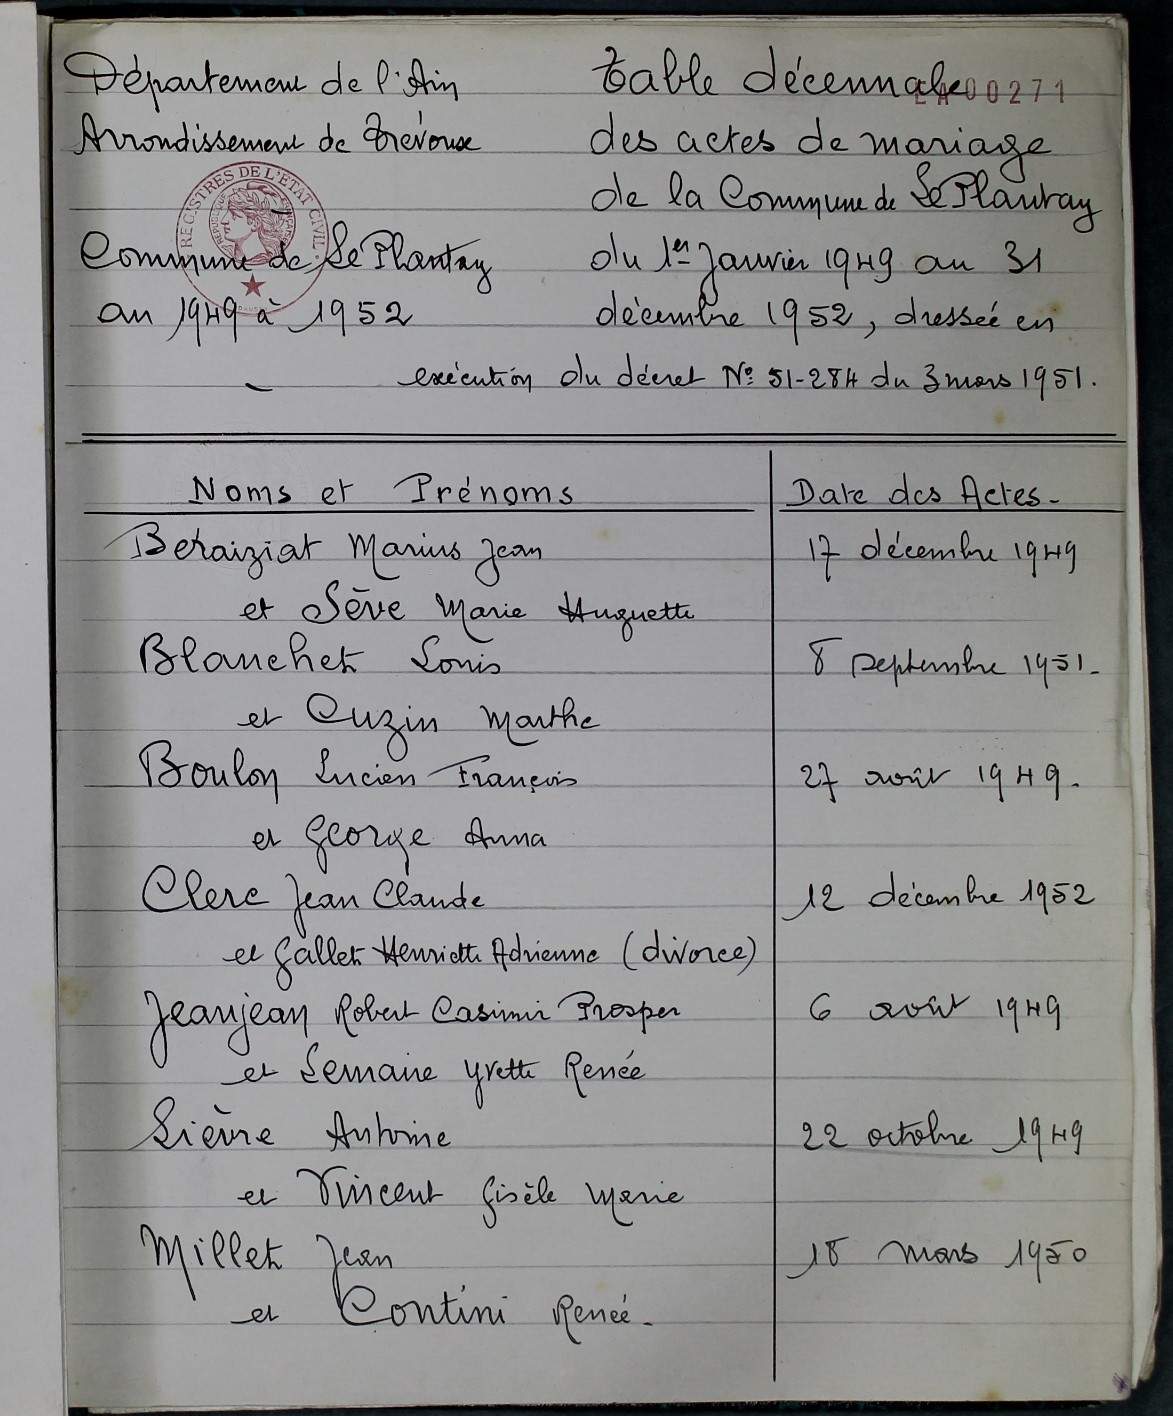 Département de l'Ain
Arrondissement de Trévoux
Commune de Le Plantay
an 1949 à 1952
REGISTRES DE L'ETAT CIVIL
Table décennale
EA 00271
des actes de mariage
de la Commune de Le Plantay
du 1er Janvier 1949 au 31
décembre 1952, dressée en
exécution du décret No 51-284 du 3 mars 1951.
Noms et Prénoms Date des Actes-
Betaiziat Marius Jean 17 décembre 1949
et Sève Marie Huguette
Blanchet Louis 8 septembre 1951-
et Cuzin Marthe
Boulon Lucien François 27 août 1949.
et George Anna
Clerc Jean Claude 12 décembre 1952
et Gallet Henriette Adrienne (divorce)
Jeanjean Robert Casimir Prosper 6 août 1949
et Lemaire Yvette Renée
Lièvre Antoine 22 octobre 1949
et Vincent Gisèle Marie
Millet Jean 18 mars 1950
et Contini Renée.